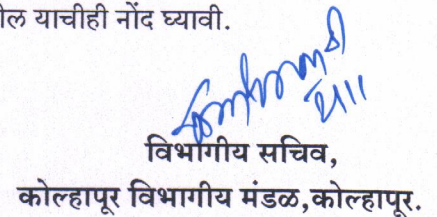 ल याचीही नोंद घ्यावी.
विभागीय सचिव,
कोल्हापूर विभागीय मंडळ,कोल्हापूर.